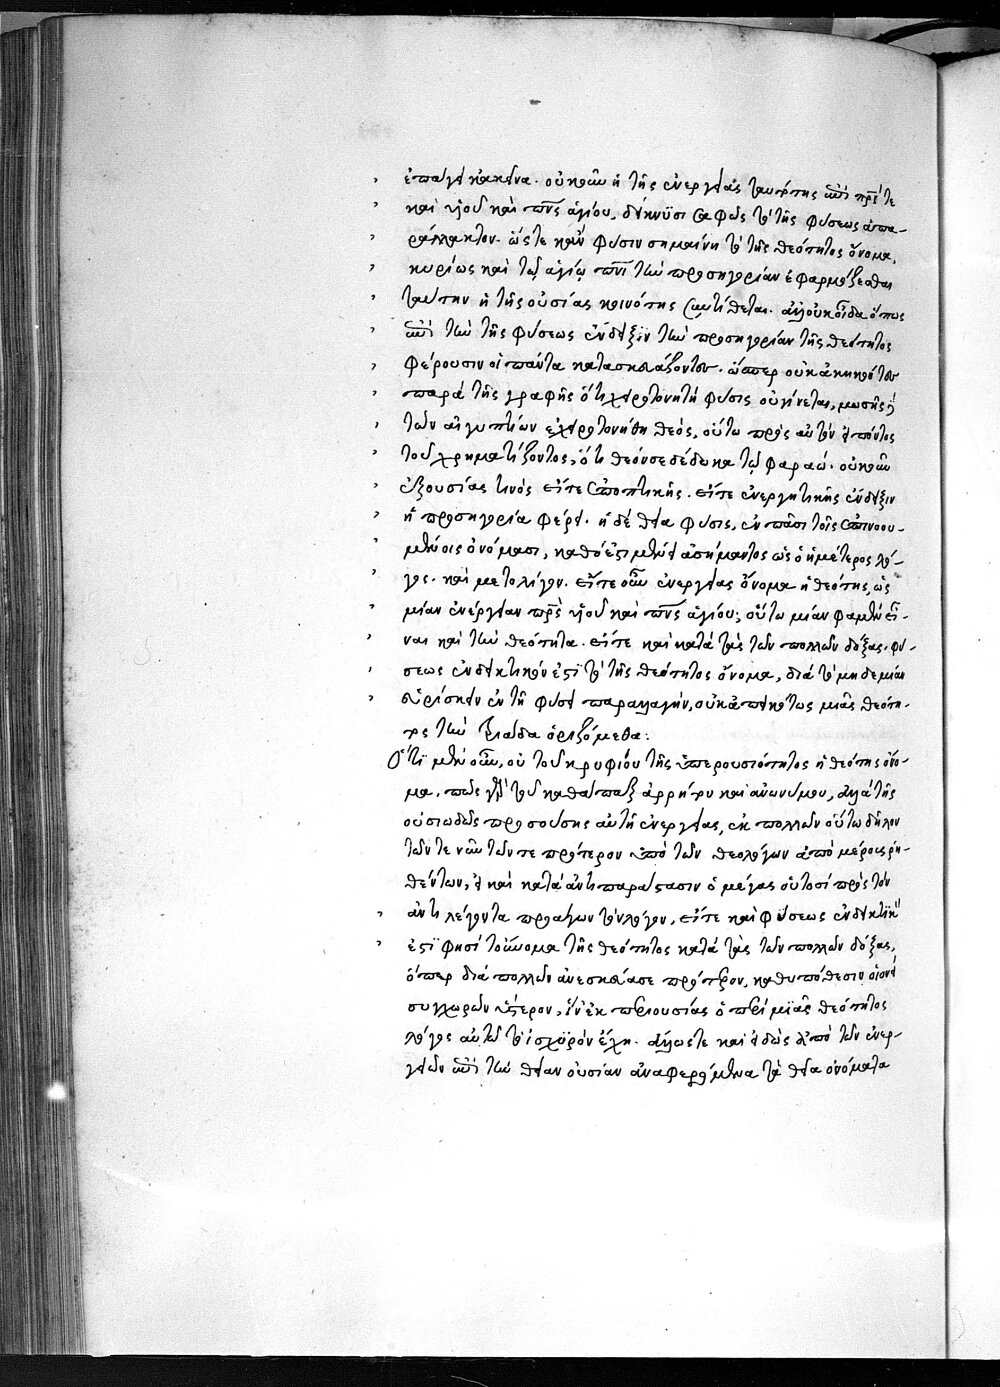 ἐπάγει κἀκεῖνα. οὐκοῦν ἡ τῆς ἐνεργείας ταυτότης ἐπὶ πρς τε
καὶ υἱοῦ καὶ πνς ἁγίου, δείκνυσι σαφῶς τὸ τῆς φύσεως ἀπα-
ράλλακτον. ὥστε κἂν φύσιν σημαίνῃ τὸ τῆς θεότητος ὄνομα,
κυρίως καὶ τῷ ἁγίῳ πνι τὴν προσηγορίαν ἐφαρμόζεσθαι
ταύτην ἡ τῆς οὐσίας κοινότης συντίθεται. ἀλλ' οὐκ οἶδα ὅπως
ἐπὶ τὴν τῆς φύσεως ἔνδειξιν τὴν προσηγορίαν τῆς θεότητος
φέρουσιν οἱ πάντα κατασκευάζοντες. ὥσπερ οὐκ ἀκηκοότες
παρὰ τῆς γραφῆς ὅτι χειροτονητὴ φύσις οὐ γίνεται, μωσῆς δὲ
τῶν αἰγυπτίων ἐχειροτονήθη θεὸς, οὕτω πρὸς αὐτὸν εἰπόντος
τοῦ χρηματίζοντος, ὅτι θεόν σε δέδωκα τῷ φαραώ. οὐκοῦν
ἐξουσίας τινὸς εἴτε ἐποπτικῆς. εἴτε ἐνεργητικῆς ἔνδειξιν
ἡ προσηγορία φέρει. ἡ δὲ θεία φύσις, ἐν πᾶσι τοῖς ἐπινοου-
μένοις ὀνόμασι, καθό ἐστι μένει ἀσήμαντος ὡς ὁ ἡμέτερος λό-
γος. καὶ μετ' ὀλίγον. εἴτε οὖν ἐνεργείας ὄνομα ἡ θεότης, ὡς
μίαν ἐνέργειαν πρς υἱοῦ καὶ πνς ἁγίου; οὕτω μίαν φαμὲν εἶ-
ναι καὶ τὴν θεότητα. εἴτε καὶ κατὰ τὰς τῶν πολλῶν δόξας, φύ-
σεως ἐνδεικτικόν ἐστι τὸ τῆς θεότητος ὄνομα, διὰ τὸ μηδεμίαν
εὑρίσκειν ἐν τῇ φύσει παραλλαγὴν, οὐκ ἀπεικότως μιᾶς θεότη-
τος τὴν τριάδα ὁριζόμεθα:
Ὅτι μὲν οὖν, οὐ τοῦ κρυφίου τῆς ὑπερουσιότητος ἡ θεότης ὄνο-
μα, πῶς γὰρ τοῦ καθάπαξ ἀρρήτου καὶ ἀνωνύμου, ἀλλὰ τῆς
οὐσιωδῶς προσούσης αὐτῇ ἐνεργείας, ἐκ πολλῶν οὕτω δῆλον
τῶν τε νῦν τῶν τε πρότερον ὑπὸ τῶν θεολόγων ἀπὸ μέρους ῥη-
θέντων, εἰ καὶ κατὰ ἀντιπαράστασιν ὁ μέγας οὑτοσὶ πρὸς τὸν
ἀντιλέγοντα προάγων τὸν λόγον, εἴτε καὶ φύσεως ἐνδεικτικόν
ἐστί φησι τὸ ὄνομα τῆς θεότητος κατὰ τὰς τῶν πολλῶν δόξας,
ὅπερ διὰ πολλῶν ἀνεσκεύασε πρότερον, καθ' ὑπόθεσιν οἱονεὶ
συγχωρῶν ὕστερον, ἵν' ἐκ περιουσίας ὁ περὶ μιᾶς θεότητος
λόγος αὐτῷ τὸ ἰσχυρὸν ἔχῃ. ἄλλως τε καὶ εἰδὼς ἀπὸ τῶν ἐνερ-
γειῶν ἐπὶ τὴν θείαν οὐσίαν ἀναφερόμενα τὰ θεῖα ὀνόματα